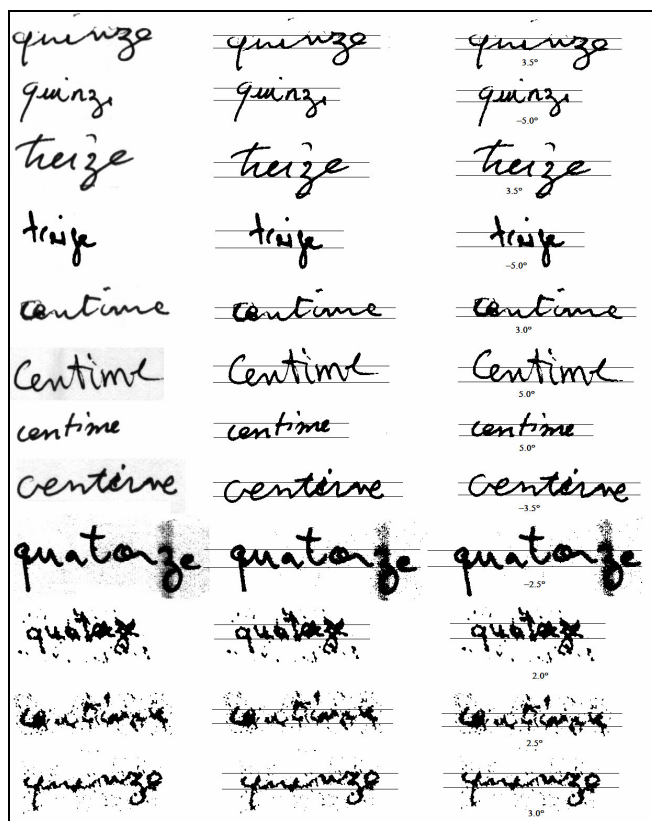 quinze quinze quinze
3.5°
quinze quinze quinze
−5.0°
treize treize treize
3.5°
treize treize treize
−5.0°
centime centime centime
3.0°
Centime Centime Centime
5.0°
centime centime centime
5.0°
centime centime centime
−3.5°
quatorze quatorze quatorze
−2.5°
quatorze quatorze quatorze
2.0°
2.5°
quinze quinze quinze
3.0°